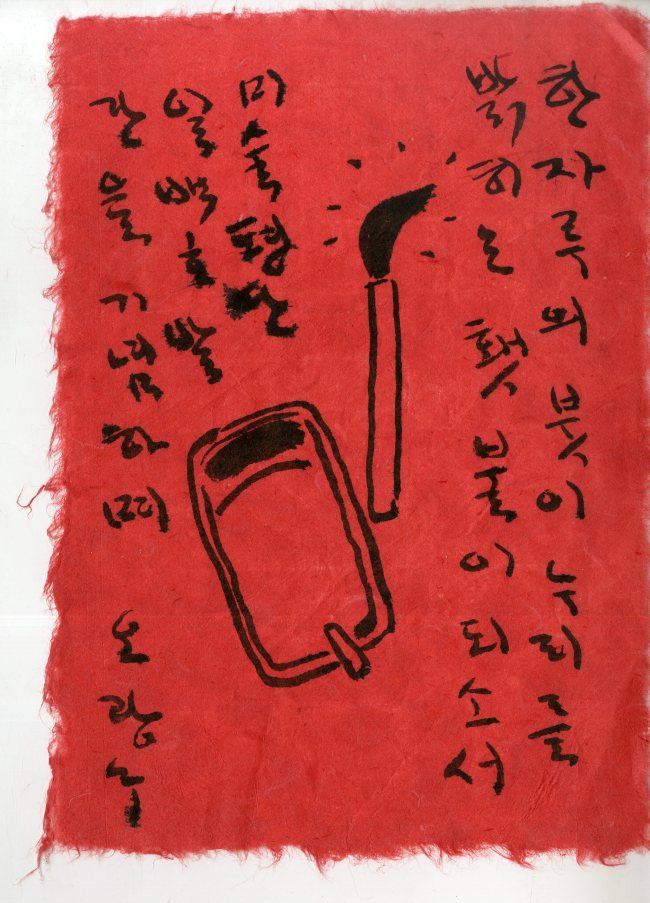 한자루의 붓이 누리를
밝히는 횃불이 되소서
미술평단
일백호 발
간을 기념하며 오광수